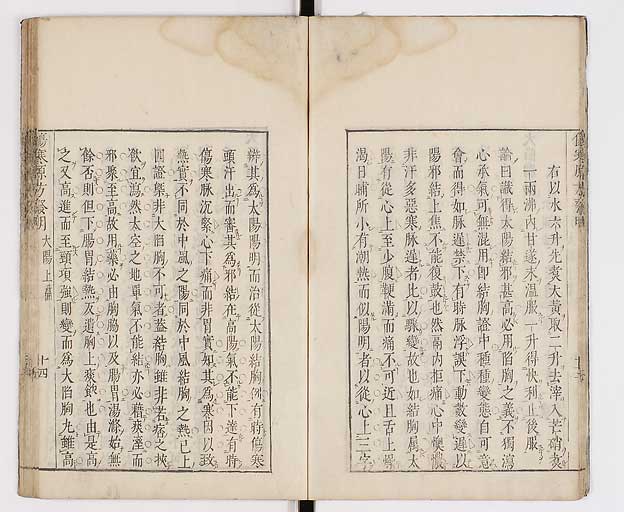 右以水六升先煑大黃取二升去滓入芒硝煑
一兩沸內甘遂末溫服一升得快利止後服
論曰識得太陽結邪甚高必用陷胸之義不獨瀉
心承氣可無混用即結胸證中種種變態自可意
會而得如脉遲禁下有時脉浮誤下動數變遲以
陽邪結上焦不能復鼓也然而內拒痛心中懊憹
非汗多惡寒脉遲者比以脉變故也如結胸屬太
陽有從心上至少腹鞕滿而痛不可近且舌上
渴日晡所小有潮熱而似陽明者以從心上二字
辨其為太陽陽明而治從太陽結胸例有時傷寒
頭汗出而審其為邪結在高陽氣不能下達有時
傷寒脉沉緊心下痛而非胃實知其為寒因以致
熱實不同於中風之陽同於中風結胸之熱已上
四證總非大陷胸不可者蓋結胸雖非若痞之挾
飲宜瀉然太空之地單氣不能結亦必藉痰涎而
邪聚至高故用藥必由胸膈以及腸胃湯滌始無
餘否則但下腸胃結熱反遺胸上痰飲也由是高
之又高進而至頸項強則變而為大陷胸丸雖高
傷寒原方發明 太陽上篇 十四